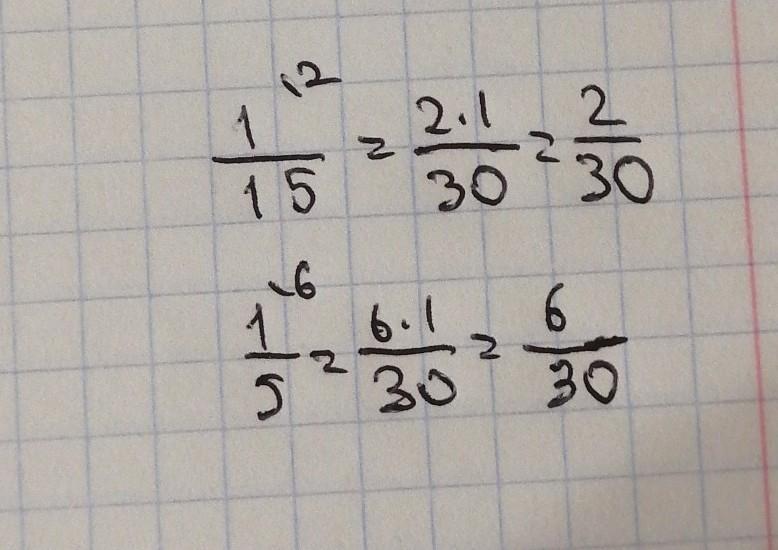 1/15 ·2 = 2·1/30 = 2/30
1/5 ·6 = 6·1/30 = 6/30